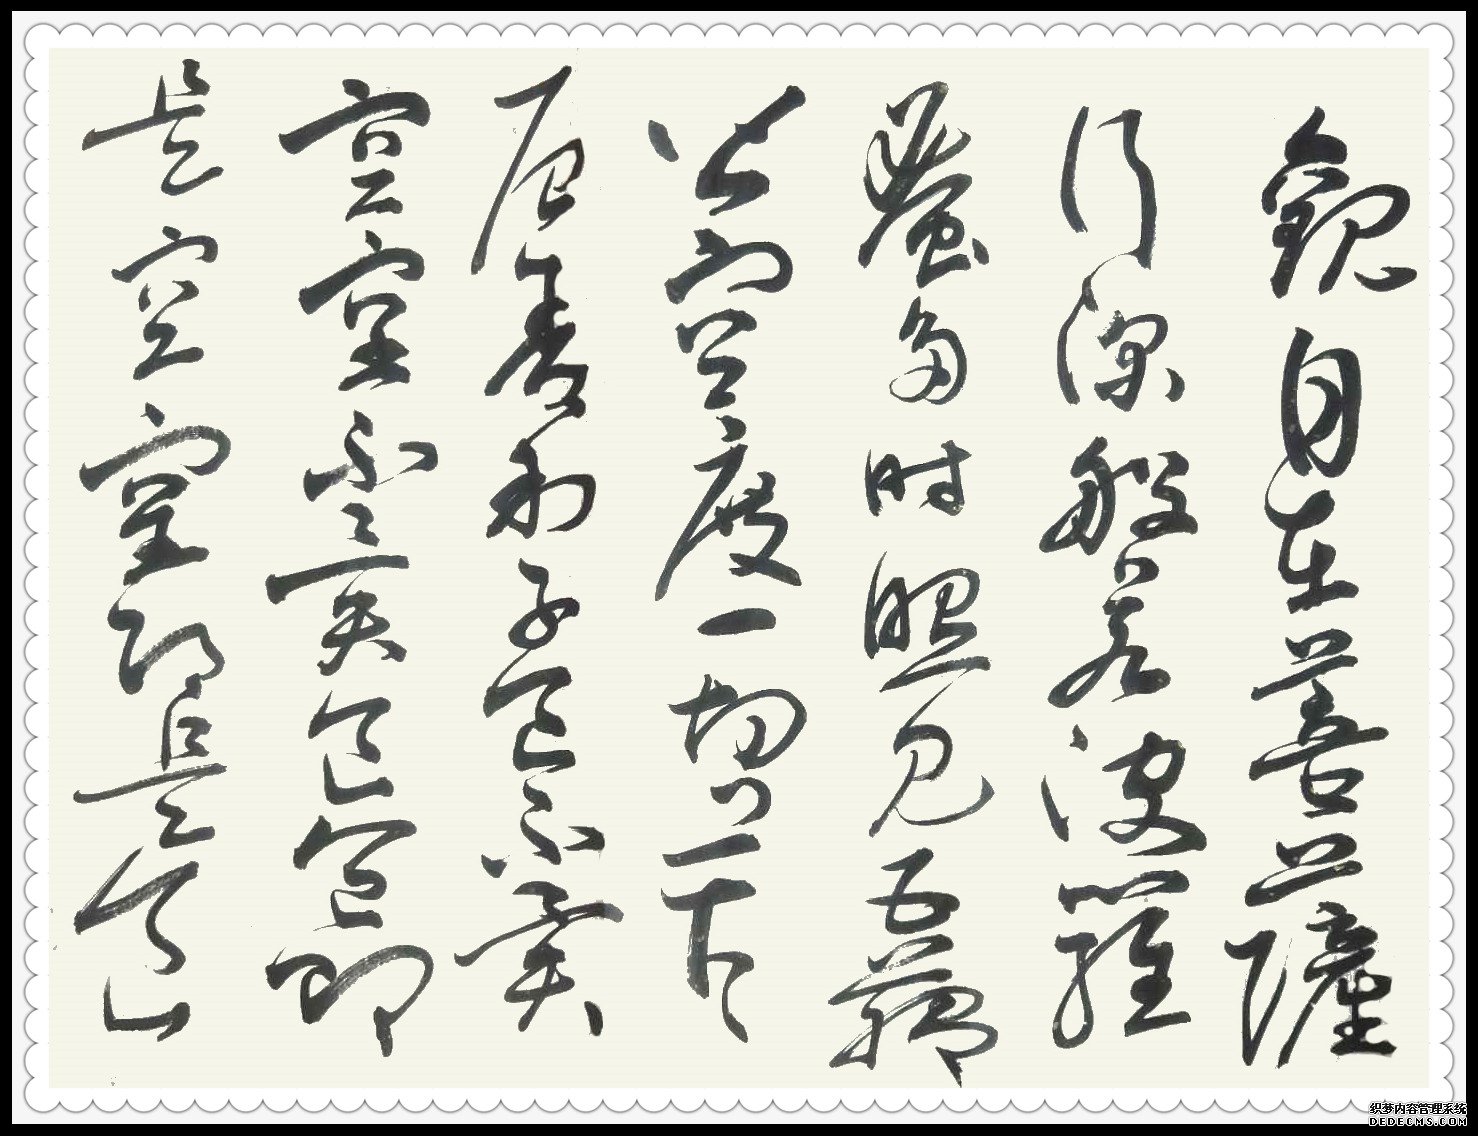 觀自在菩薩
行深般若波羅
蜜多時照見五蘊
皆空度一切苦
厄舍利子色不異
空空不異色色即
是空空即是色
织梦内容管理系统
DEDECMS.COM